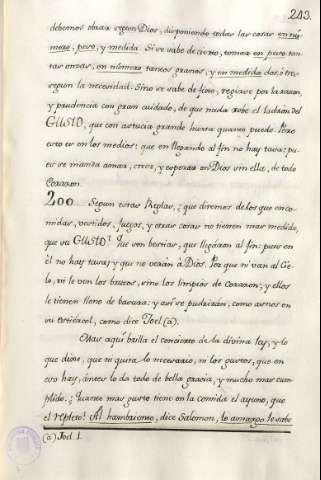 213.
debemos obrar segun Dios, disponiendo todas las cosas en nu-
mero, peso, y medida. Si se sabe de cierto, tomar en peso tan-
tas onzas, en número tantos granos, y en medida dos, ó tres
segun la necesidad. Sino se sabe de fixo, regirse por la razon,
y prudencia con gran cuidado, de que nada robe el ladron del
GUSTO, que con astucia grande hurta quanto puede. Pero
esto es en los medios: que en llegando al fin no hay tasa: pu-
es se manda amar, creer, y esperar en Dios sin ella, de todo
Corazon.
200 Segun estas Reglas, ¿que diremos de los que en co-
midas, vestidos, Juegos, y otras cosas no tienen mas medida,
que su GUSTO? Que son bestias, que llegaron al fin: pues en
él no hay tasa; y que no verán à Dios. Por que ni van al Cie-
lo, ni le ven los brutos, sino los limpios de Corazon; y ellos
le tienen lleno de basura: y así se pudrirán, como asnos en
su estiércol, como dice Joel (a).
Mas aquí brilla el concierto de la divina ley, y lo
que dixe, que ni quita lo necesario, ni los gustos, que en
eso hay, ántes lo da todo de bella gracia, y mucho mas cum-
plido. ¿Quanto mas gusto tiene en la comida el ayuno, que
el repleto? Al hambriento, dice Salomon, lo amargo le sabe
(a) Joel. 1.